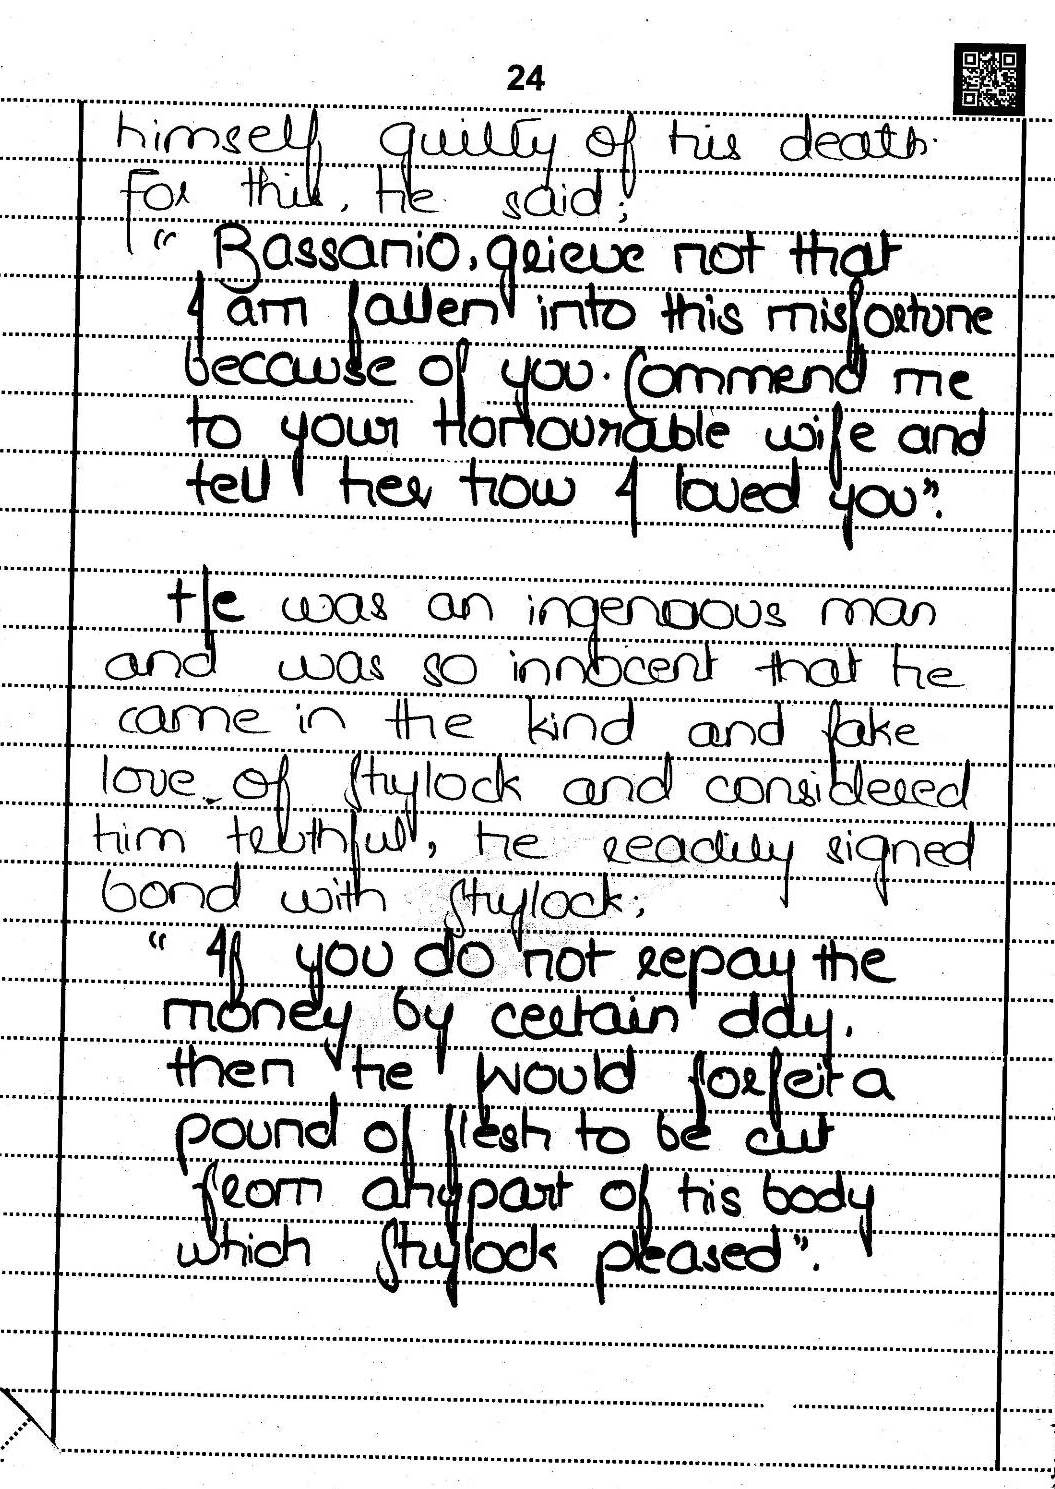 24
himself guilty of his death.
For this, he said;
"Bassanio, grieve not that
I am fallen into this misfortune
because of you. Commend me
to your Honourable wife and
tell her how I loved you".
He was an ingenoous man
and was so innocent that he
came in the kind and fake
love of Shylock and considered
him truthful, he readily signed
bond with Shylock;
"If you do not repay the
money by certain day,
then he would forfeit a
pound of flesh to be cut
from any part of his body
which Shylock pleased".